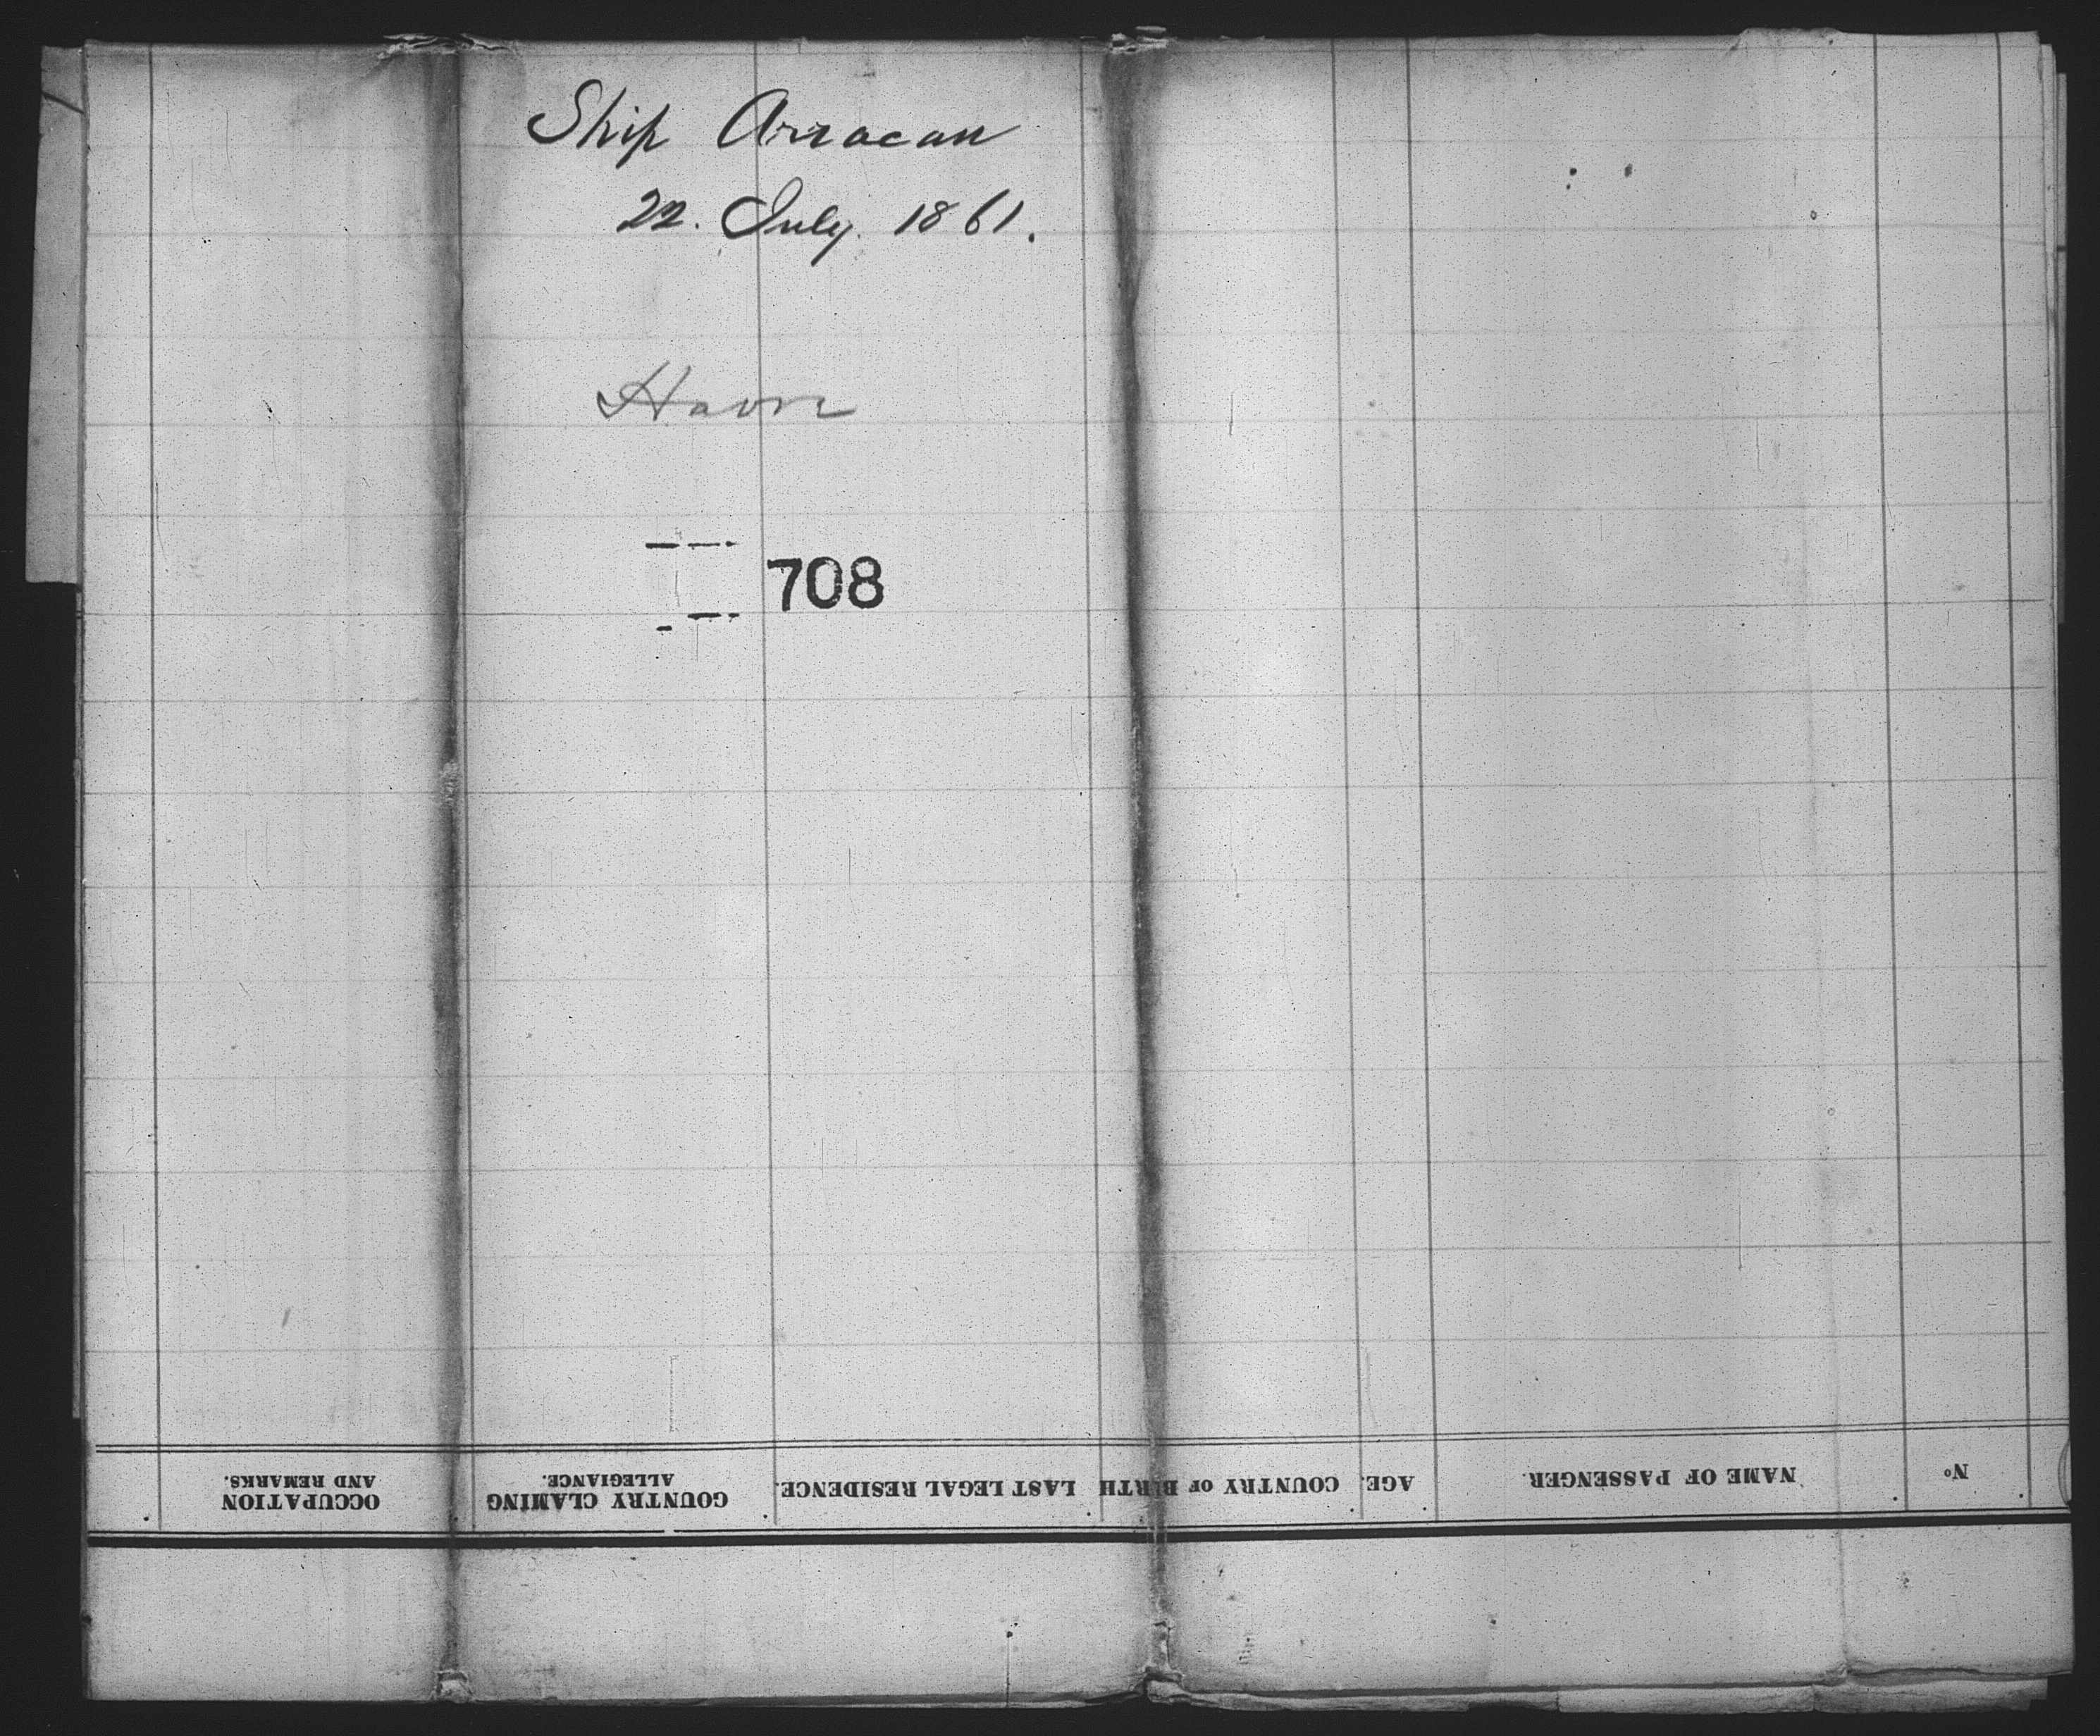 Ship Arracan
22. July. 1861.
Havre
708
Nº
NAME OF PASSENGER.
AGE.
COUNTRY OF BIRTH
LAST LEGAL RESIDENCE.
COUNTRY CLAMING
ALLEGIANCE.
OCCUPATION
AND REMARKS.